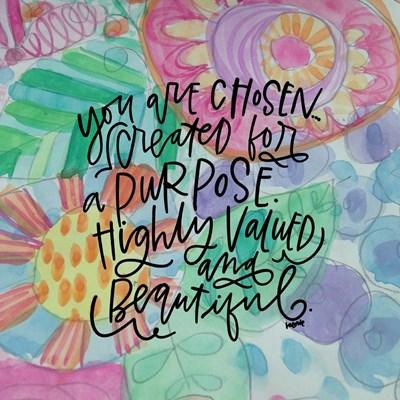 you are CHOSEN...
Created for
a PURPOSE.
Highly Valued
and
Beautiful.